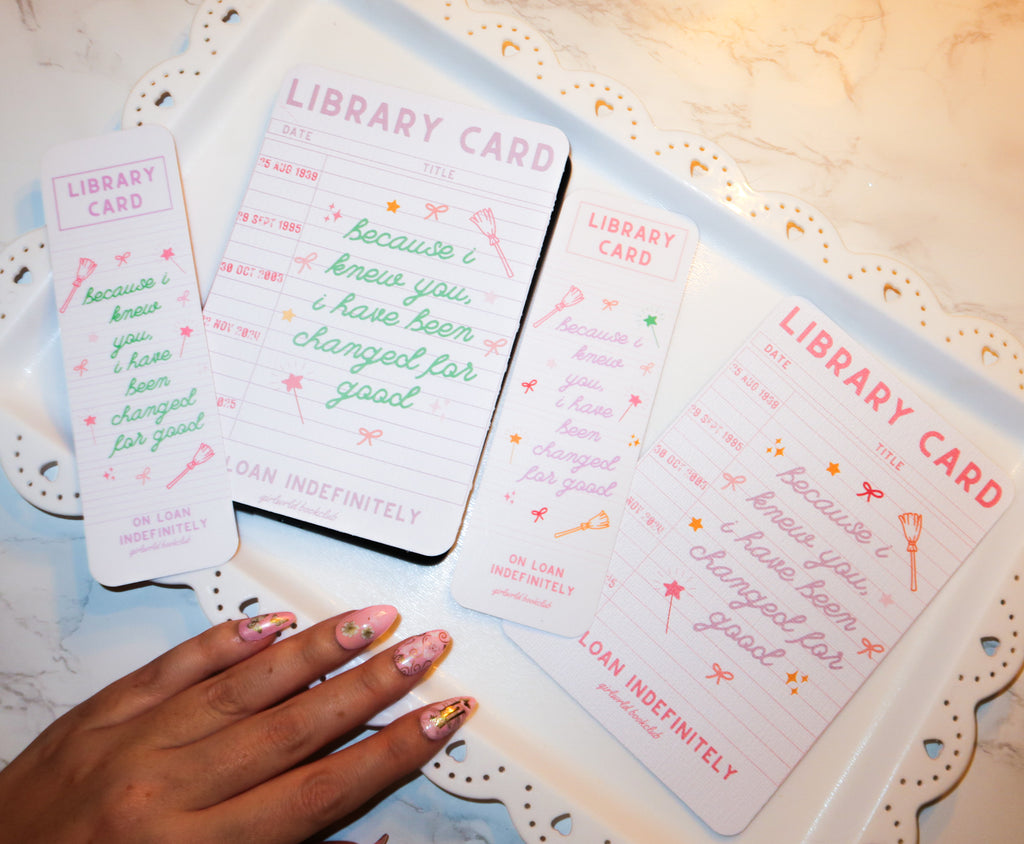 LIBRARY
CARD
because i
knew
you,
i have
been
changed
for good
ON LOAN
INDEFINITELY
girlworld bookclub
LIBRARY CARD
DATE
TITLE
25 AUG 1939
29 SEPT 1995
30 OCT 2003
22 NOV 2024
2025
because i
knew you,
i have been
changed for
good
LOAN INDEFINITELY
girlworld bookclub
LIBRARY
CARD
because i
knew
you,
i have
been
changed
for good
ON LOAN
INDEFINITELY
girlworld bookclub
LIBRARY CARD
DATE
TITLE
25 AUG 1939
29 SEPT 1995
30 OCT 2003
NOV 2024
because i
knew you,
i have been
changed for
good
LOAN INDEFINITELY
girlworld bookclub